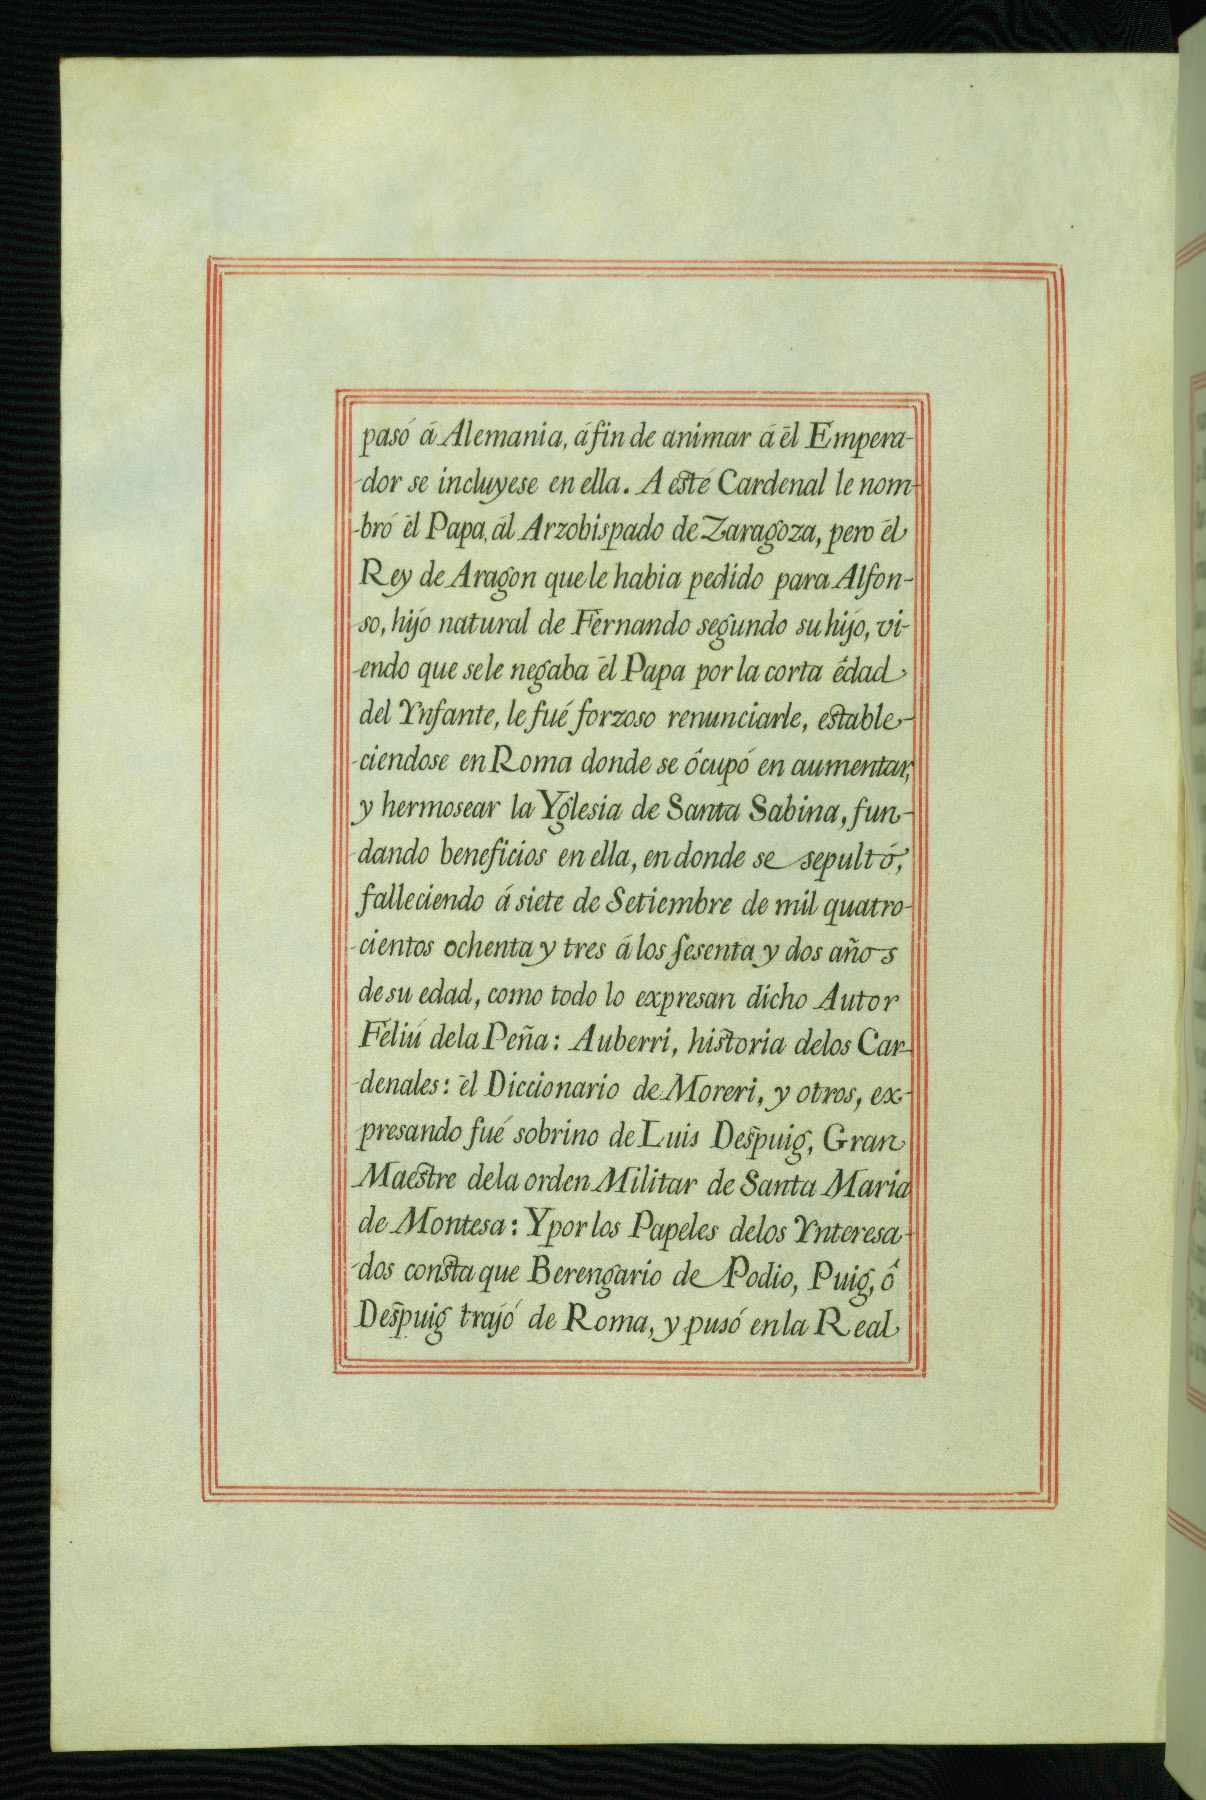 pasó á Alemania, áfin de animar á él Empera-
-dor se incluyese en ella. A esté Cardenal le nom-
-bró él Papa, ál Arzobispado de Zaragoza, pero él
Rey de Aragon que le habia pedido para Alfon-
-so, hijo natural de Fernando segundo su hijo, vi-
-endo que sele negaba él Papa por la corta êdad
del Ynfante, le fué forzoso renunciarle, estable-
-ciendose en Roma donde se ôcupó en aumentar,
y hermosear la Yglesia de Santa Sabina, fun-
-dando beneficios en ella, en donde se sepultó,
falleciendo á siete de Setiembre de mil quatro-
-cientos ochenta y tres á los sesenta y dos años
de su edad, como todo lo expresan dicho Autor
Féliú dela Peña: Auberri, historia delos Car-
-denales: él Diccionario de Moreri, y otros, ex-
presando fué sobrino de Luis Despuig, Gran
Maestre dela orden Militar de Santa Maria
de Montesa: Y por los Papeles delos Ynteresa-
-dos consta que Berengario de Podio, Puig, ô
Despuig trajó de Roma, y pusó en la Real